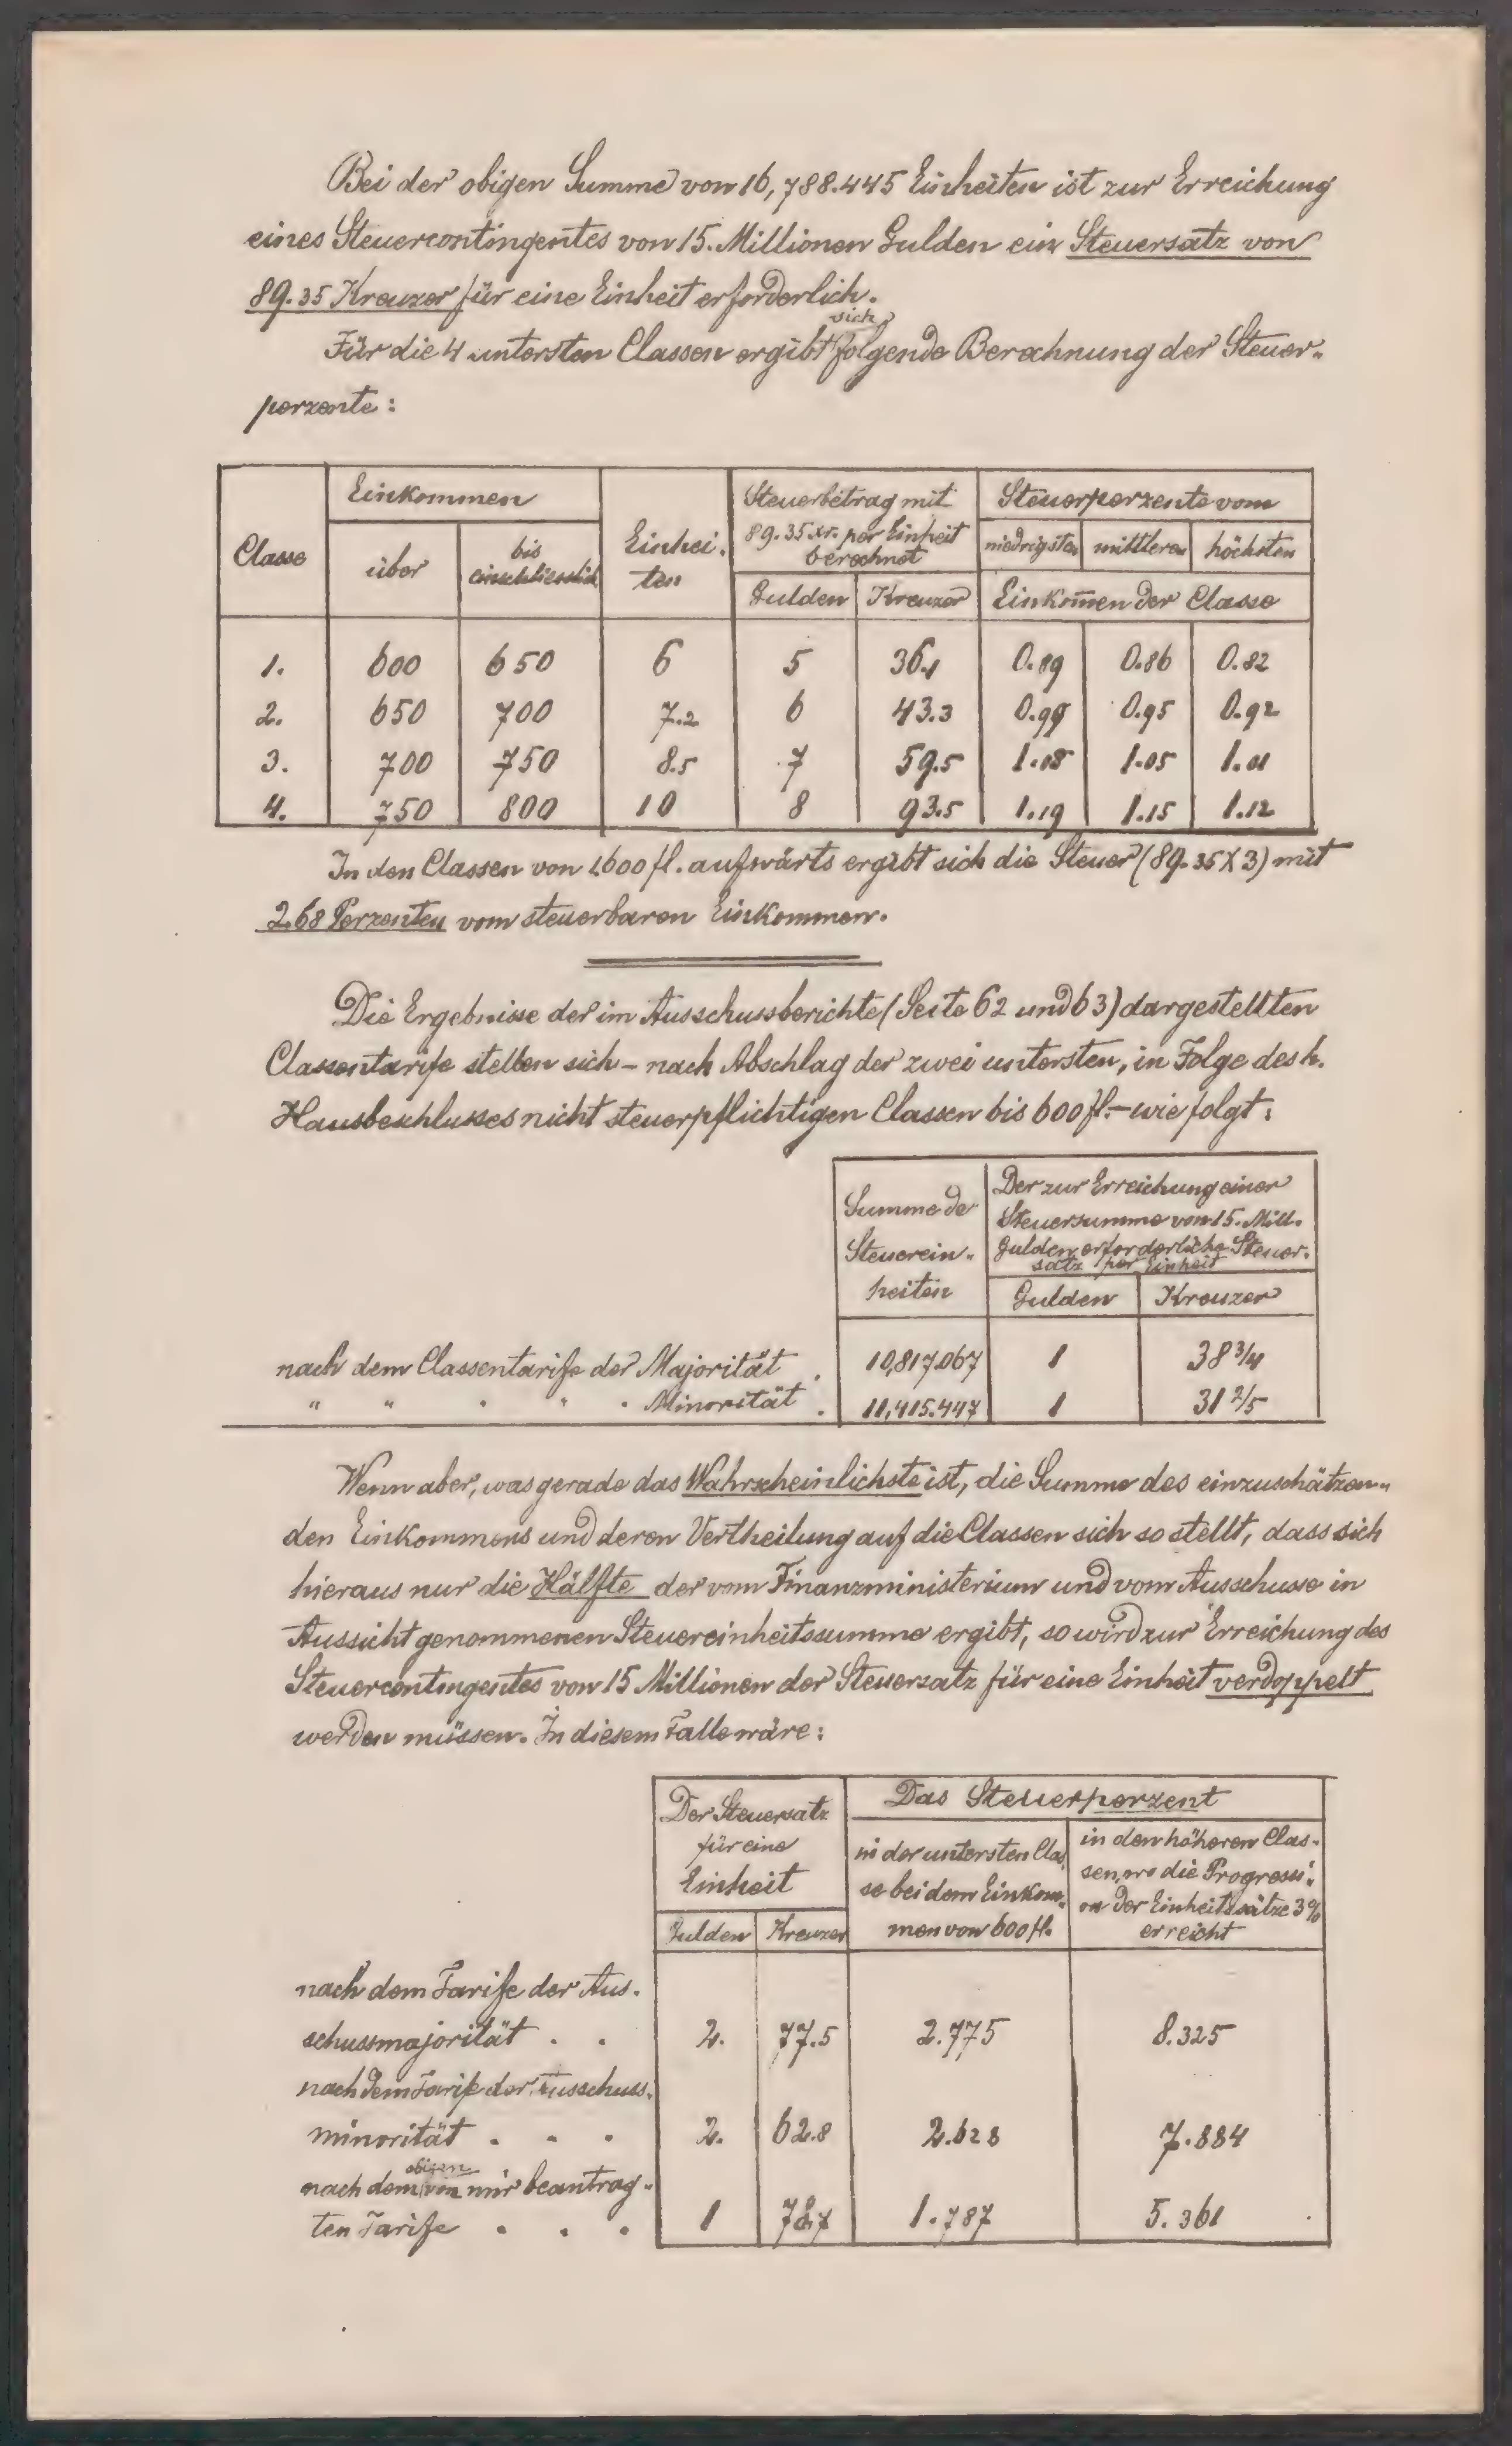 Bei der obigen Summe von 16,788.445 Einheiten ist zur Erreichung
eines Steuercontingentes von 15. Millionen Gulden ein Steuersatz von
89.35 Kreuzer für eine Einheit erforderlich.
sich
Für die 4 untersten Classen ergibt folgende Berechnung der Steuer-
perzente:
Einkommen
Steuerbetrag mit
Steuerperzente vom
Classe
über
bis
einschliesslich
Einhei-
ten
89.35 xr. per Einheit
berechnet
niedrigsten mittleren höchsten
Gulden Kreuzer Einkom̄en der Classe
1. 600 650 6 5 36.1 0.89 0.86 0.82
2. 650 700 7.2 6 43.3 0.99 0.95 0.92
3. 700 750 8.5 7 59.5 1.08 1.05 1.01
4. 750 800 10 8 93.5 1.19 1.15 1.12
In den Classen von 1.600 fl. aufwärts ergibt sich die Steuer (89.35 X 3) mit
2.68 Perzenten vom steuerbaren Einkommen.
Die Ergebnisse der im Ausschussberichte (Seite 62 und 63) dargestellten
Classentarife stellen sich - nach Abschlag der zwei untersten, in Folge des h.
Hausbeschlusses nicht steuerpflichtigen Classen bis 600 fl. - wie folgt:
Summe de
Steuerein-
heiten
Der zur Erreichung einer
Steuersumme von 15. Mill.
Gulden erforderliche Steuer-
satz per Einheit
Gulden Kreuzer
nach dem Classentarife der Majorität . 10,817.067 1 38 3/4
" " " " " Minorität . 11,415.447 1 31 2/5
Wenn aber, was gerade das Wahrscheinlichste ist, die Summe des einzuschätzen-
den Einkommens und deren Vertheilung auf die Classen sich so stellt, dass sich
hieraus nur die Hälfte der vom Finanzministerium und vom Ausschusse in
Aussicht genommenen Steuereinheitssumme ergibt, so wird zur Erreichung des
Steuercontingentes von 15 Millionen der Steuersatz für eine Einheit verdoppelt
werden müssen. In diesem Falle wäre:
Der Steuersatz
für eine
Einheit
Gulden Kreuzer
Das Steuerperzent
in der untersten Clas
se bei dem Einkom-
men von 600 fl.
in den höheren Clas-
sen, wo die Progressi-
on der Einheitssätze 3%
erreicht
nach dem Tarife der Aus-
schussmajorität . . 2. 77.5 2.775 8.325
nach dem Tarife der Ausschuss-
minorität . . . 2. 62.8 2.628 7.884
obigen
nach dem von mir beantrag-
ten Tarife . . . 1 78.7 1.787 5.361